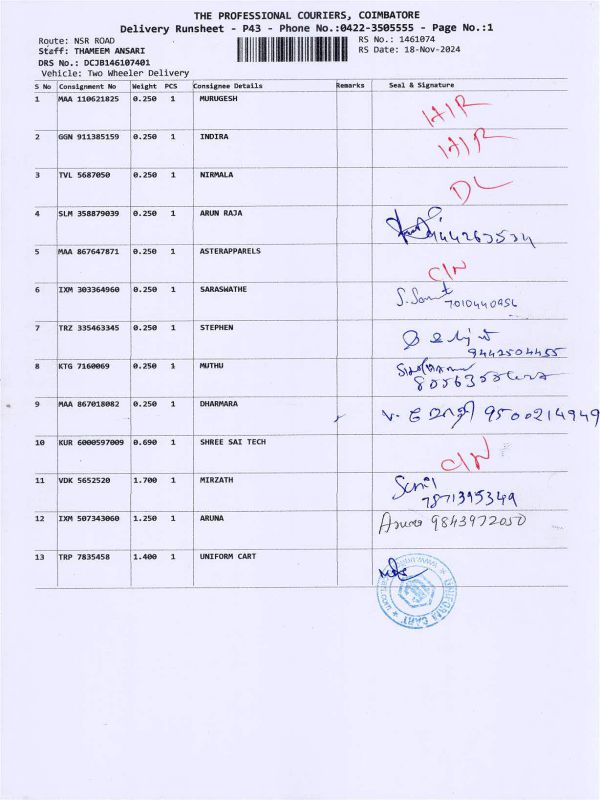 THE PROFESSIONAL COURIERS, COIMBATORE
Delivery Runsheet - P43 - Phone No.:0422-3505555 - Page No.:1
Route: NSR ROAD RS No.: 1461074
Staff: THAMEEM ANSARI RS Date: 18-Nov-2024
DRS No.: DCJB146107401
Vehicle: Two Wheeler Delivery
S No Consignment No Weight PCS Consignee Details Remarks Seal & Signature
1 MAA 110621825 0.250 1 MURUGESH
2 GGN 911385159 0.250 1 INDIRA
3 TVL 5687050 0.250 1 NIRMALA DL
4 SLM 358879039 0.250 1 ARUN RAJA
5 MAA 867647871 0.250 1 ASTERAPPARELS C/N
6 IXM 303364960 0.250 1 SARASWATHE 7010440956
7 TRZ 335463345 0.250 1 STEPHEN
9442504455
8 KTG 7160069 0.250 1 MUTHU
9 MAA 867018082 0.250 1 DHARMARA 9500214949
10 KUR 6000597009 0.690 1 SHREE SAI TECH C/N
11 VDK 5652520 1.700 1 MIRZATH
7871395349
12 IXM 507343060 1.250 1 ARUNA Aruna 9843972050
13 TRP 7835458 1.400 1 UNIFORM CART
UNIFORM CART